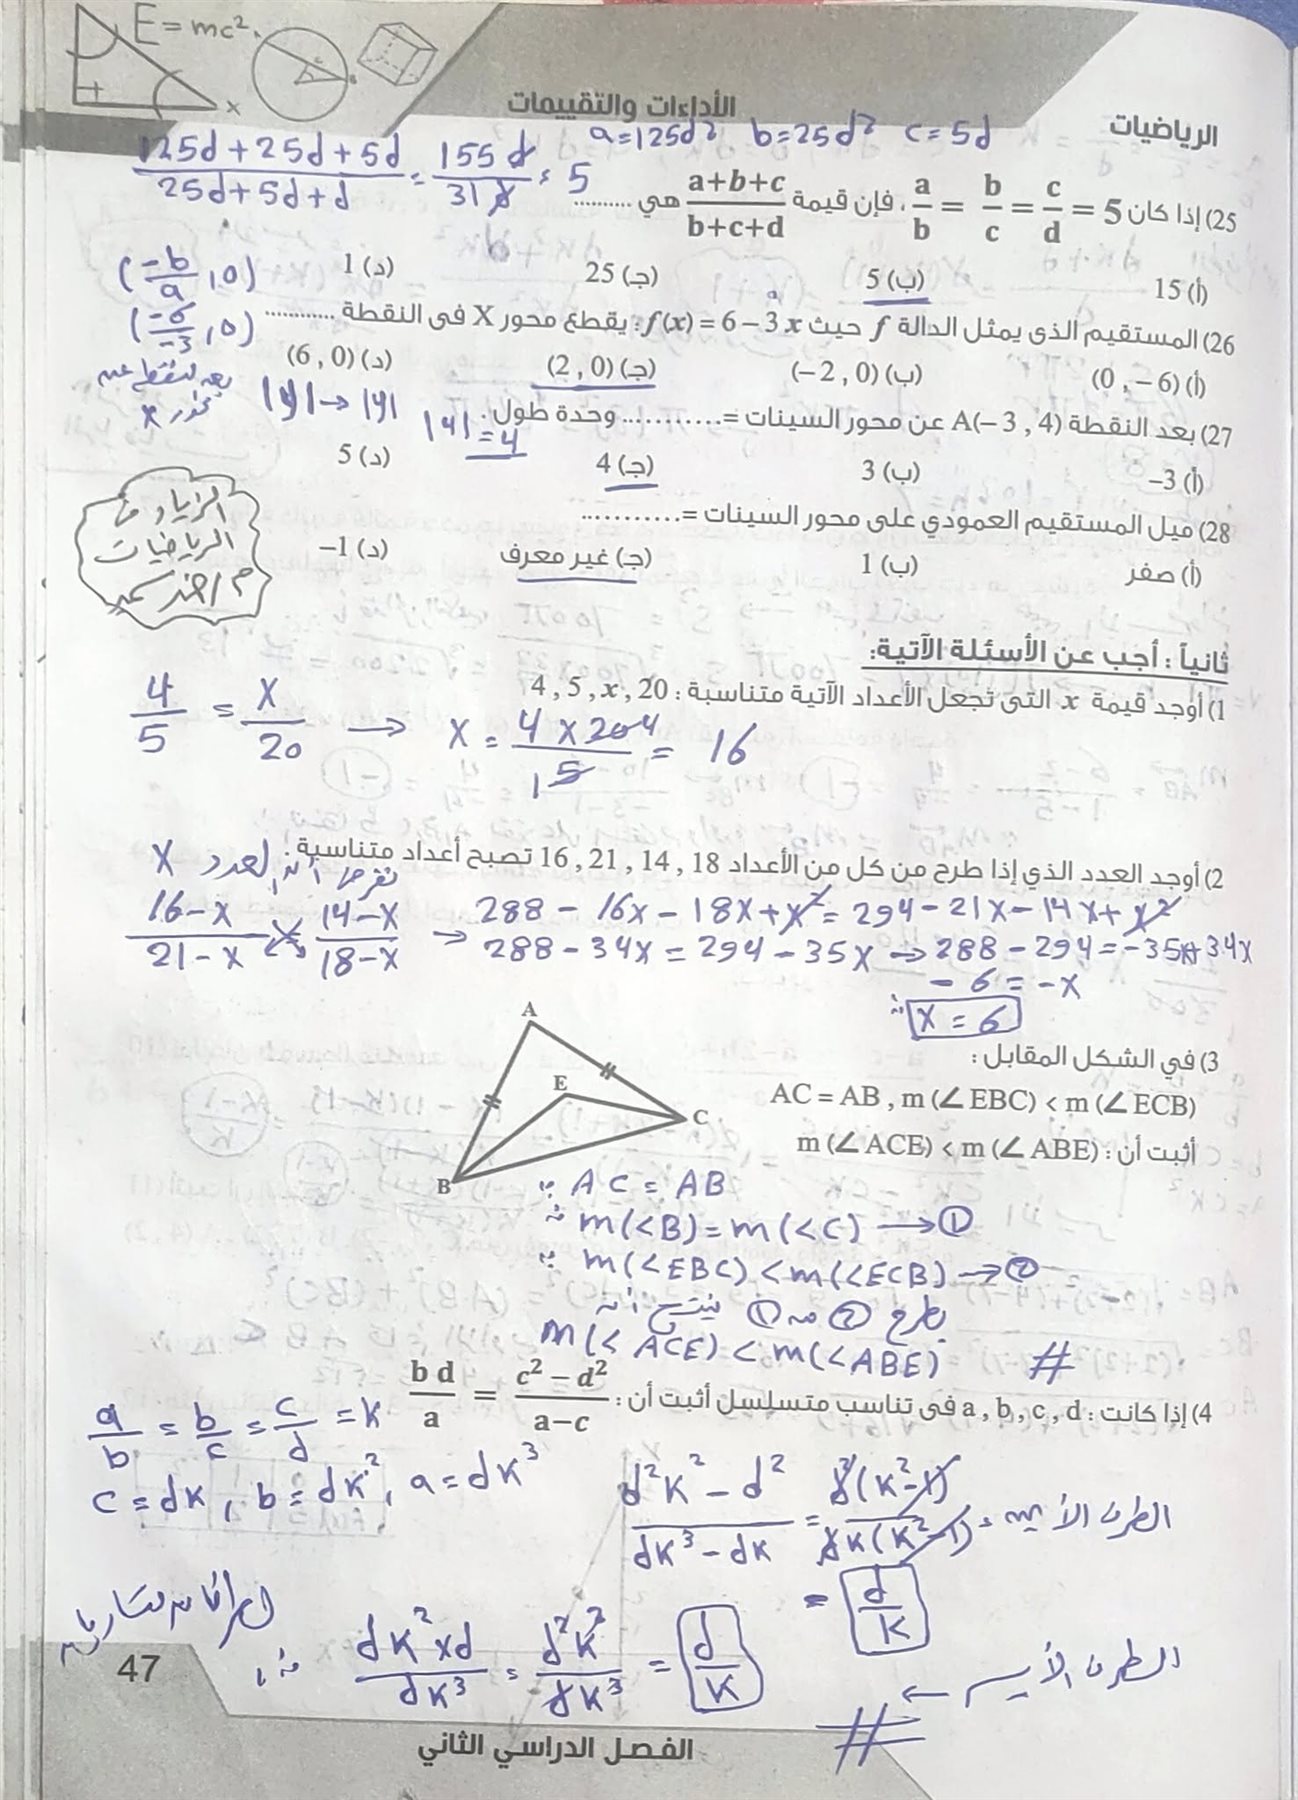 E = mc².
الأداءات والتقييمات
الرياضيات
a=125d² b=25d² c=5d
125d+25d+5d / 25d+5d+d = 155d / 31d = 5
25) إذا كان a/b = b/c = c/d = 5 ، فإن قيمة a+b+c / b+c+d هي ..........
أ) 15 ب) 5 ج) 25 د) 1
(-b/a , 0)
26) المستقيم الذى يمثل الدالة f حيث f(x) = 6 – 3x : يقطع محور X فى النقطة ............
(-6/-3 , 0)
أ) (0 , –6) ب) (–2 , 0) ج) (2 , 0) د) (6 , 0)
بعد النقطة عن محور x |y| → |4|
27) بعد النقطة A(–3 , 4) عن محور السينات =........... وحدة طول.
|4| = 4
أ) –3 ب) 3 ج) 4 د) 5
28) ميل المستقيم العمودي على محور السينات =...........
أ) صفر ب) 1 ج) غير معرف د) –1
الرياضيات
ثانياً : أجب عن الأسئلة الآتية:
1) أوجد قيمة x التى تجعل الأعداد الآتية متناسبة : 4 , 5 , x , 20
4/5 = x/20 → x = 4×20/5 = 16
2) أوجد العدد الذي إذا طرح من كل من الأعداد 16 , 21 , 14 , 18 تصبح أعداد متناسبة.
نفرض أن العدد x
16-x / 21-x = 14-x / 18-x → 288 - 16x - 18x + x² = 294 - 21x - 14x + x²
288 - 34x = 294 - 35x → 288 - 294 = -35x + 34x
- 6 = -x
∴ x = 6
3) في الشكل المقابل :
AC = AB , m (∠EBC) < m (∠ECB)
أثبت أن : m (∠ACE) < m (∠ABE)
A
E
C
B
∵ AC = AB
∴ m(<B) = m(<C) → ①
∵ m(<EBC) < m(<ECB) → ②
بطرح ② من ① ينتج أن
m(< ACE) < m(<ABE) #
4) إذا كانت : a , b , c , d فى تناسب متسلسل أثبت أن : c² – d² / a–c = b d / a
a/b = b/c = c/d = k
c = dk , b = dk² , a = dk³
الطرف الأيمن = d²k² - d² / dk³ - dk = d²(k²-1) / dk(k²-1)
= d/k
الطرف الأيسر ←
dk² × d / dk³ = d²k² / dk³ = d/k
∴ الطرفان متساويان
#
47
الفصل الدراسي الثاني